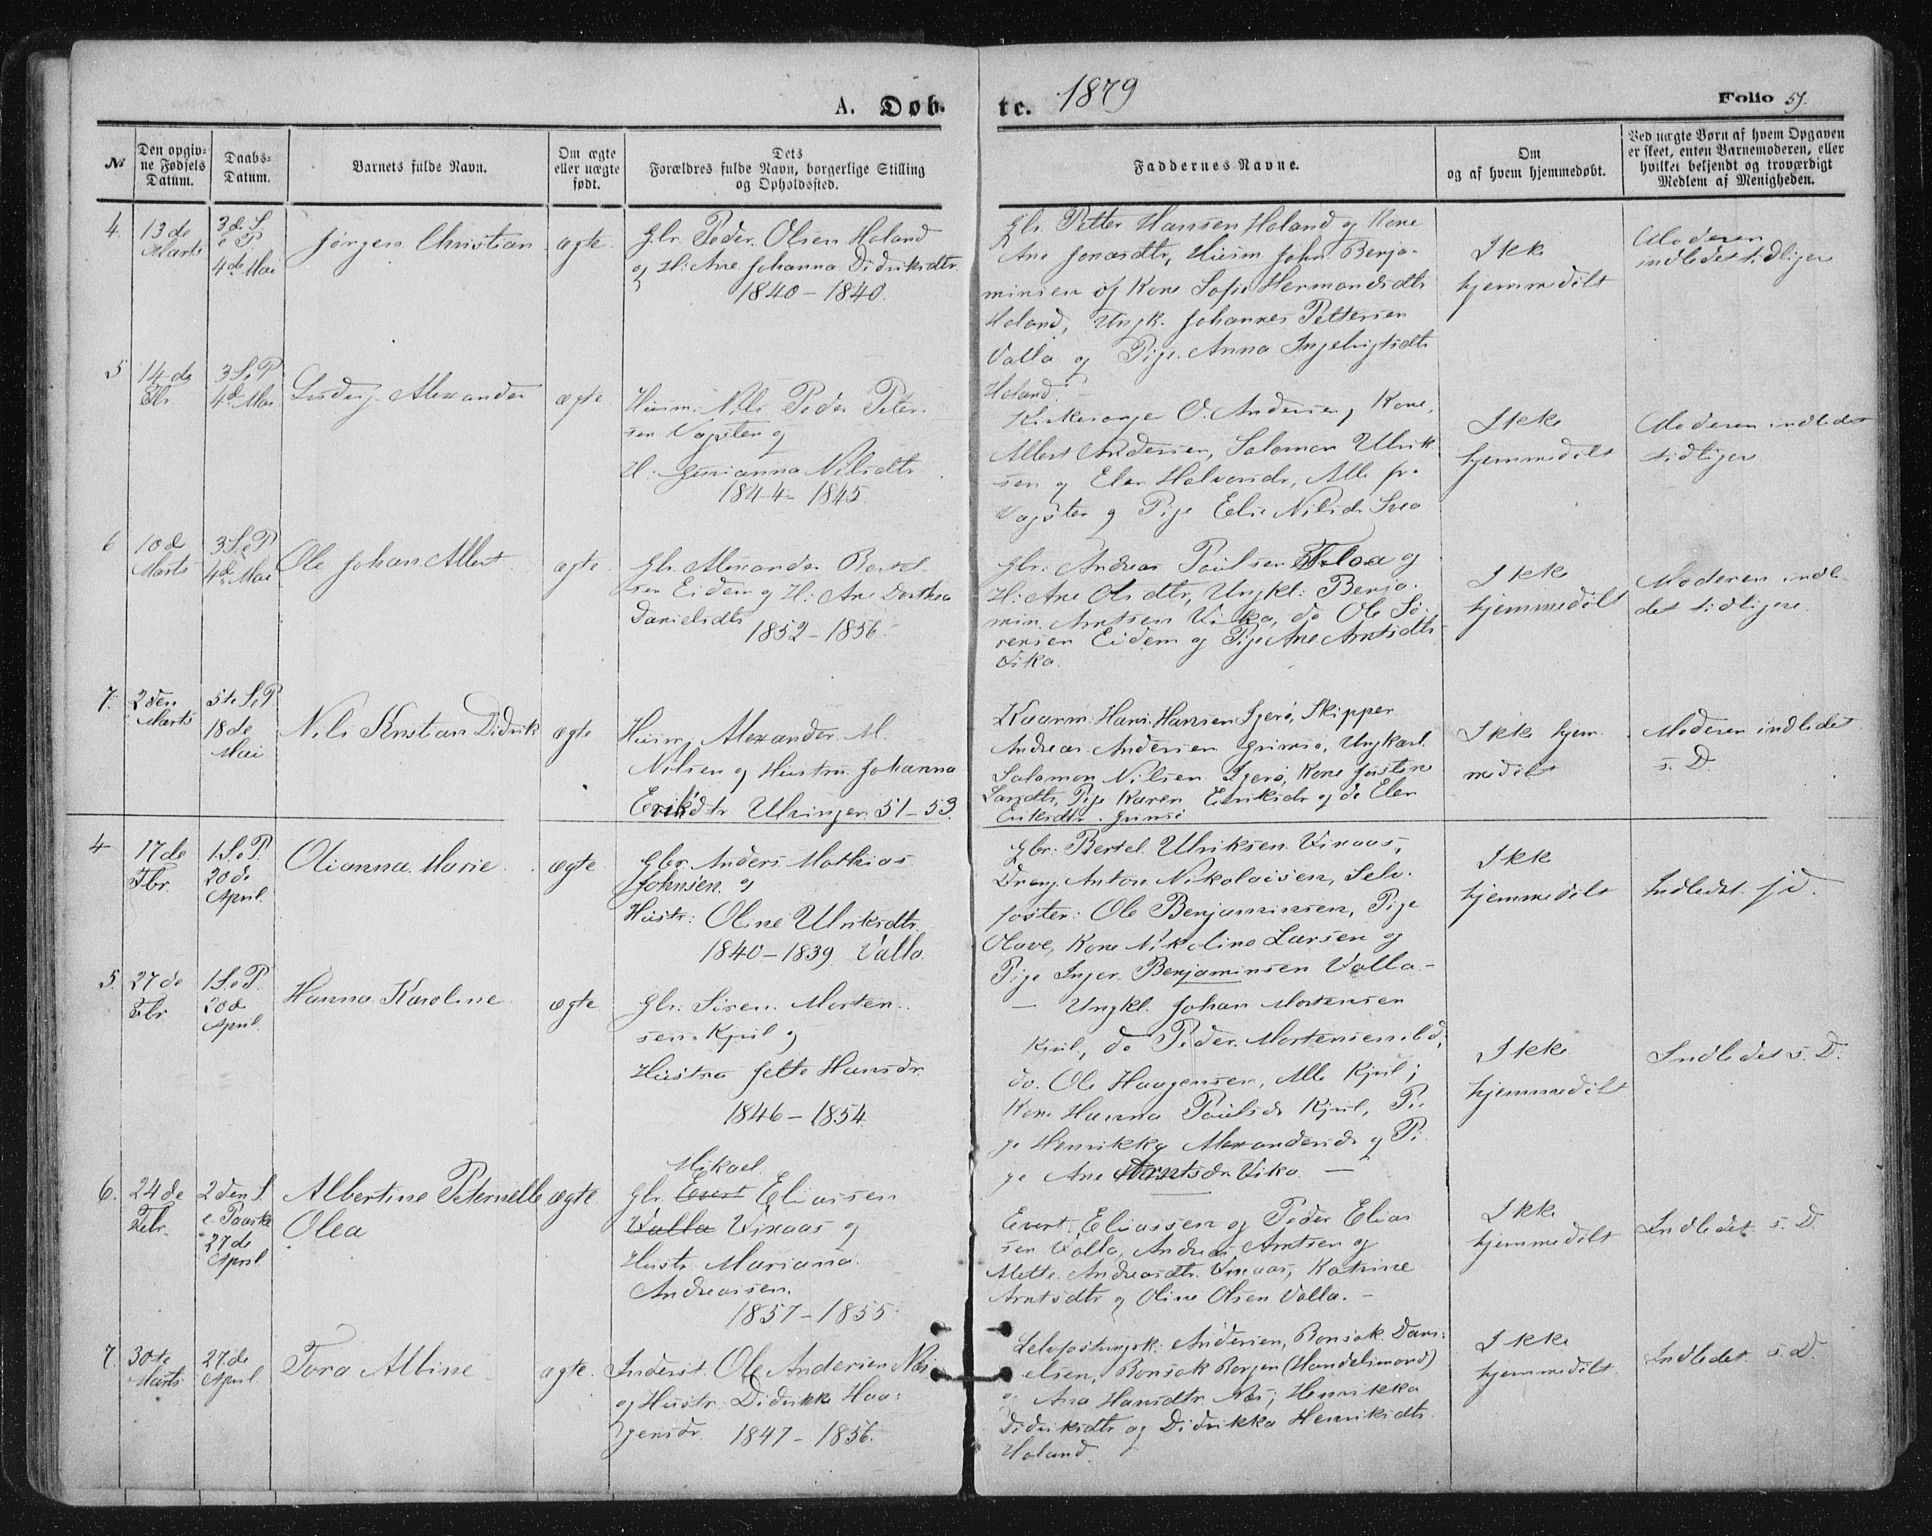 A. Døb- te. 1879 Folio 51.
№
Den opgiv-
ne Fødsels
Datum.
Daabs-
Datum.
Barnets fulde Navn.
Om ægte
eller uægte
født.
Dets
Forældres fulde Navn, borgerlige Stilling
og Opholdssted.
Faddernes Navne.
Om
og af hvem hjemmedøbt.
Ved uægte Børn af hvem Opgaven
er skeet, enten Barnemoderen, eller
hvilket bekjendt og troværdigt
Medlem af Menigheden.
4.
13de
Marts
3d. S.
e P
4de Mai
Jørgen Christian
ægte
Gbr. Peder Olsen Holand
og H: Ane Johanna Didriksdtr
1840 - 1840.
Gbr Petter Hansen Holand og Kone
Ane Jonasdtr, Husm. John Benja-
minsen og Kone Sofie Hermansdtr
Holand, Ungk. Johannes Pettersen
Valla og Pige Anna Ingebrigtsdtr
Holand.
Ikke
hjemmedøbt
Moderen
indledet tidligere
5
14de
Fbr
3 S. e P
4de Mai
Ludvig Alexander
ægte
Husm. Nils Peder Peter-
sen Vagsten og
H. Nilsdtr
1844 - 1845.
Kirkesanger O. Andersen, Kone,
Albert Andersen, Salomon Ulrik-
sen og Elen Halvorsdr, Alle fr
Vagsten og Pige Elie Nilsdr
Ikke
hjemmedøbt
Moderen indledet
tidligere
6
10de
Marts
3 S. e P
4de Mai
Ole Johan Albert
ægte
Gbr. Alexander
sen Eidem og H: Ane Dorthea
Danielsdtr
1852 - 1856.
Gbr. Andreas Paulsen Floa og
H: Ane Olsdtr, Ungkl: Benja-
min Arntsen Vika, do Ole Sø-
rensen Eidem og Pige Ane Arntsdtr
Vika.
Ikke
hjemmedøbt
Moderen indle-
det tidligere.
7.
2den
Marts
5te S. e P
18de
Mai
Nils Kristian Didrik
ægte
Husm. Alexander M.
Nilsen og Hustru Johanna
Eriksdtr Ulvingen 51 - 53.
Kaarm. Hans Hansen Skipper
Andreas Andersen Grimsø, Ungkarl
Salomon Nilsen Kone Justine
Larsdtr, Pige Karen Eriksdr og do Elen
Eriksdtr. Grimsø
Ikke hjem-
medøbt
Moderen indledet
s. D.
4
17de
Fbr.
1 S. e P.
20de
April.
Olianna Marie
ægte
Gbr. Anders Mathias
Johnsen og
Hustr: Oline Ulriksdtr
1840 - 1839 Valla.
Gbr. Bertel Ulriksen Vinaas,
Dreng Anton Nikolaisen, Selv-
foster: Ole Benjaminsen, Pige
Olave, Kone Nikoline Larsen og
Pige Inger Benjaminsen Valla -
Ikke
hjemmedøbt
Indledet s. D.
5.
27de
Fbr
1 S. e P.
20de
April
Hanna Karoline
ægte
Gbr. Sören Morten-
sen Kjul og
Hustru Jette Hansdr
1846 - 1854
- Ungkl. Johan Mortensen
Kjul, do Peder Mortensen ibd,
do. Ole Haagensen, Alle Kjul;
Kone Hanna Paulsdr Kjul, Pi-
ge Henrikka Alexandersdr og Pi-
ge Ane Arntsdr Vika -
Ikke
hjemmedøbt
Indledet s. D.
6.
24de
Febr.
2den S.
e. Paaske
27de
April
Albertine Peternelle
Olea
ægte.
Mikael
Gbr. Evert Eliassen
Valla Vinaas og
Hustr. Mariana
Andreassen.
1857 - 1855.
Evert Eliassen og Peder Elias-
sen Valla, Andreas Arntsen og
Mette Andreasdtr. Vinaas, Katrine
Arntsdtr og Oline Olsen Valla. -
Ikke
hjemmedøbt
Indledet s. D.
7.
30te
Marts
27de
April
Tora Albine
ægte.
Inderst Ole Andersen Næs
og Hustr. Didrikke Haa-
gensdr. 1847 - 1856.
Andersen, Bonsak Dani-
elsen, Bonsak Borgen (Handelsmand)
og Ana Hansdtr Næs, Henrikka
Didriksdtr og Didrikka Henriksdtr
Holand.
Ikke
hjemmedøbt
Indledet s. D.